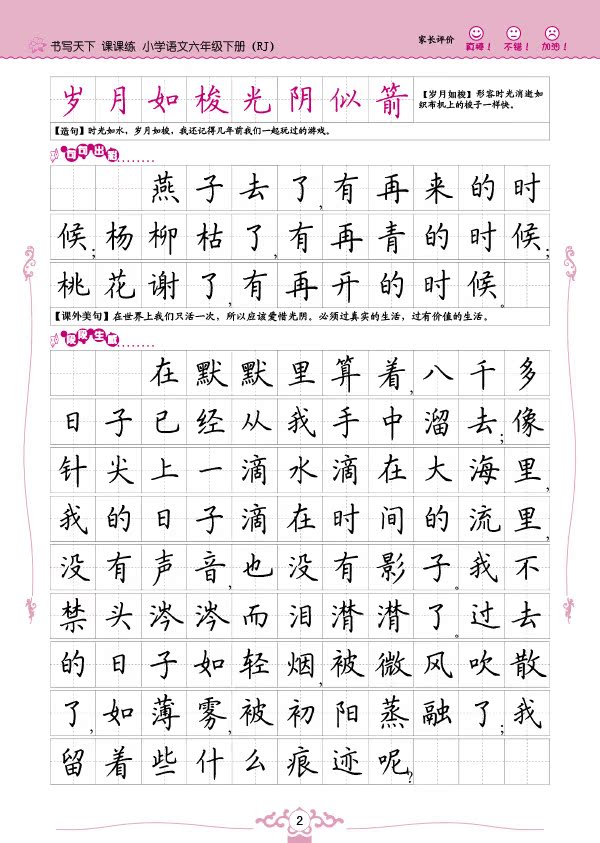 书写天下 课课练 小学语文六年级下册（RJ）
家长评价
真棒！ 不错！ 加油！
岁月如梭光阴似箭
【岁月如梭】形容时光消逝如
织布机上的梭子一样快。
【造句】时光如水，岁月如梭，我还记得几年前我们一起玩过的游戏。
句句出彩
燕子去了,有再来的时
候;杨柳枯了,有再青的时候;
桃花谢了,有再开的时候。
【课外美句】在世界上我们只活一次，所以应该爱惜光阴。必须过真实的生活，过有价值的生活。
段段生辉
在默默里算着,八千多
日子已经从我手中溜去;像
针尖上一滴水滴在大海里,
我的日子滴在时间的流里,
没有声音,也没有影子。我不
禁头涔涔而泪潸潸了。过去
的日子如轻烟,被微风吹散
了,如薄雾,被初阳蒸融了;我
留着些什么痕迹呢?
2